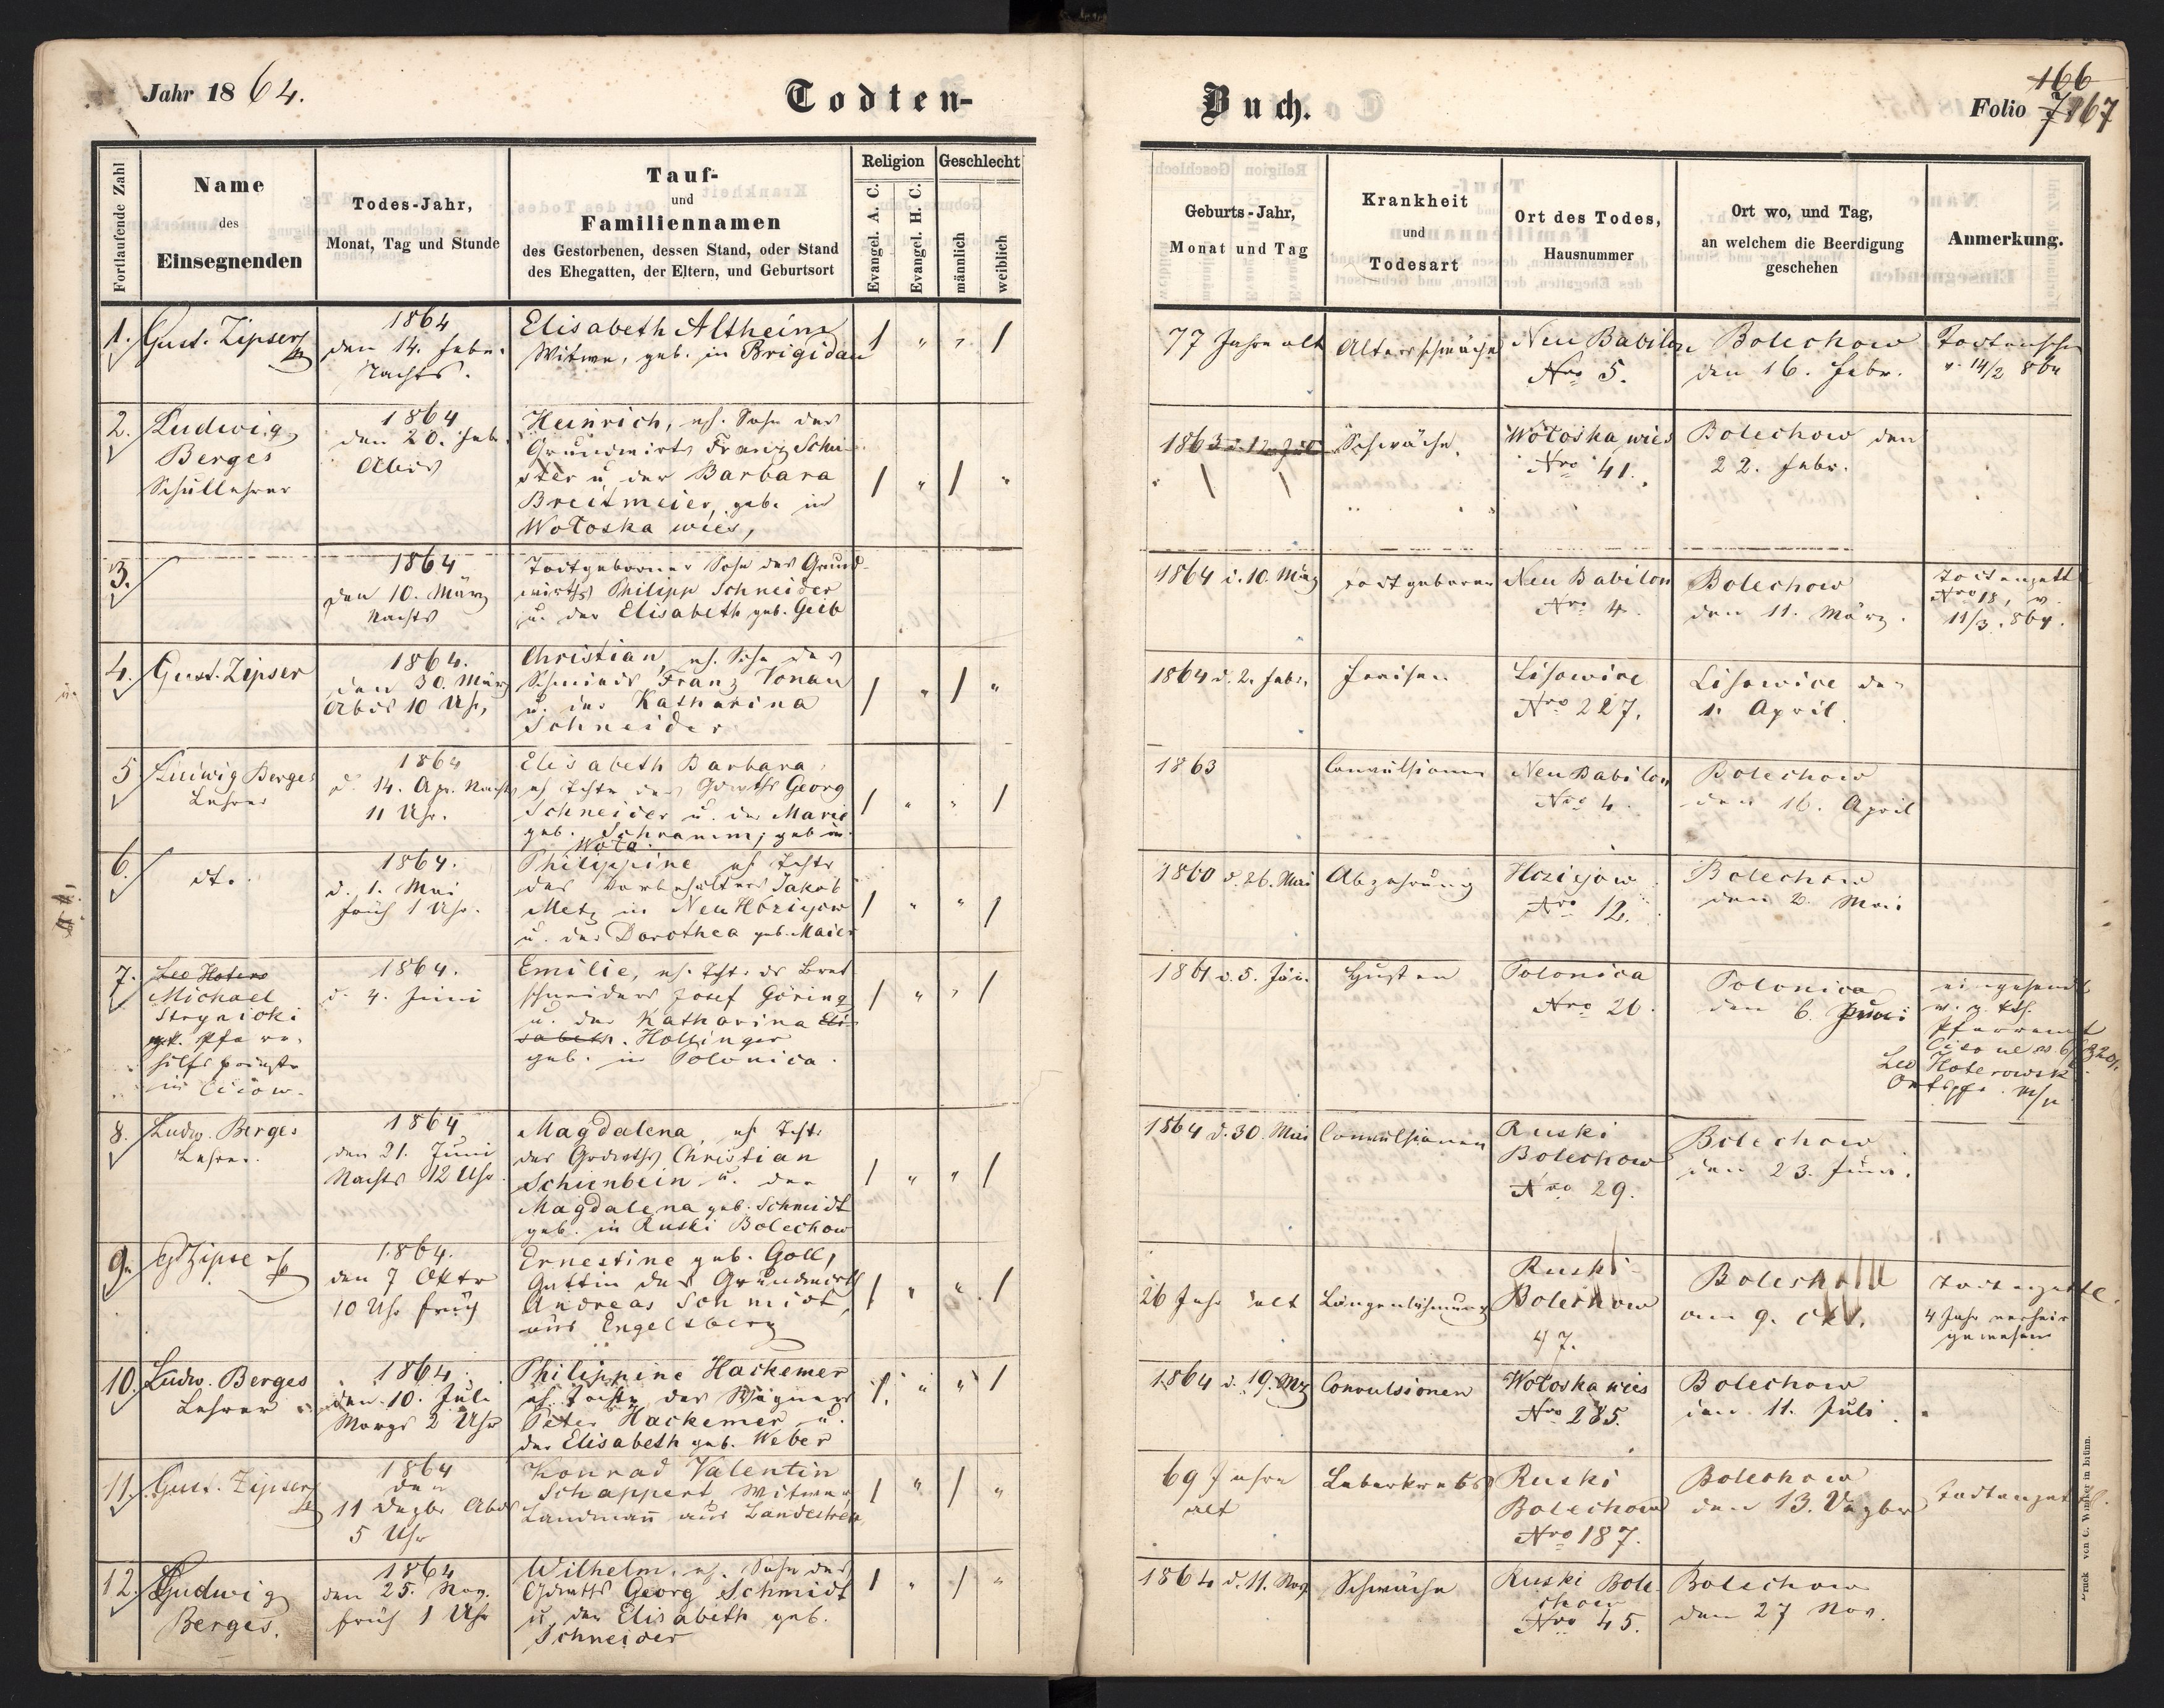 Jahr 1864.
Todten-
Buch.
166
Folio 7 167
Fortlaufende Zahl
Name
des
Einsegnenden
Todes-Jahr,
Monat, Tag und Stunde
Tauf-
und
Familiennamen
des Gestorbenen, dessen Stand, oder Stand
des Ehegatten, der Eltern, und Geburtsort
Religion
Evangel. A. C.
Evangel. H. C.
Geschlecht
männlich
weiblich
Geburts-Jahr,
Monat und Tag
Krankheit
und
Todesart
Ort des Todes,
Hausnummer
Ort wo, und Tag,
an welchem die Beerdigung
geschehen
Anmerkung.
1. Gust. Zipser
1864
den 14. Febr.
Nachts.
Elisabeth Altheim
Witwe, geb. in Brigidau
/ " " /
77 Jahre alt
Altersschwäche
Neu Babilon
Nro 5.
Bolechow
den 16. Febr.
v. 14/2 864
2. Ludwig
Berges
Schullehrer
1864
den 20. Feb.
Abds
Heinrich, eh. Sohn des
Grundwirts Franz Schu-
ster u. der Barbara
Breitmeier, geb. in
Wołoska wies,
/ " / "
1863 d. 12. Jul
Schwäche.
Wołoska wies
Nro 41.
Bolechow den
22. Febr.
3.
1864
den 10. März
Nachts
Todtgeborner Sohn des Grund-
wirths Philipp Schneider
u. der Elisabeth geb. Geib
1864 d. 10. März
todtgeboren
Neu Babilon
Nro 4.
Bolechow
den 11. März.
Todtenzett
Nro 18, v.
11/3. 864.
4. Gust. Zipser
1864.
den 30. März
Abds 10 Uhr,
Christian, eh. Sohn des
Schmieds Franz Tonau
u. der Katharina
Schneider
/ " / "
1864 d. 2. Febr.
Fraisen
Lisowice
Nro 227.
Lisowice den
1. April.
5 Ludwig Berges
Lehrer
1864
d. 14. Apr. Nachts
11 Uhr.
Elisabeth Barbara,
eh Tchtr des Gdwths Georg
Schneider u. der Marie
geb. Schramm; geb in
Woło.
/ " " /
1863
Convulsionen
Neu Babilon
Nro 4.
Bolechow
den 16. April
6. dt.
1864.
d. 1. Mai
früh 1 Uhr.
Philippine eh Tchtr
des Vorbehalters Jakob
Metz in Neu Hoziejow
u. der Dorothea geb. Maier
/ " " /
1860 d. 26. Mai
Abzehrung
Hoziejow
Nro 12.
Bolechow
den 2. Mai
7. Leo Hoters
Michael
Strynicki
Pfarr-
hilfspriester
in Cisow.
1864.
d. 4. Juni
Emilie, eh. Tcht. ds Bret
schneiders Josef Göring
u. der Katharina Eli-
sabeth. Hollinger
geb. in Polonica.
/ " " /
1861 d. 5. Jän.
Husten
Polonica
Nro 26.
Polonica
den 6. Juni
eingesendet
Pfarramt
Leo Hoterowski
Ortspfr. m/p
8. Ludw. Berges
Lehrer.
1864
den 21. Juni
Nachts 12 Uhr.
Magdalena, eh. Tcht.
des Grdwths Christian
Schienbein u. der
Magdalena geb. Schmidt
geb. in Ruski Bolechow
/ " " /
1864 d. 30. Mai
Convulsionen
Ruski
Bolechow
Nro 29.
Bolechow
den 23. Juni.
9. G Zipser
1864.
den 7 Oktr
10 Uhr früh
Ernestine geb. Goll,
Gattin des Grundwirth
Andreas Schmidt,
aus Engelsberg
/ " " /
26 Jahr alt
Lungenlähmung
Ruski-
Bolechow
47.
Bolechow
am 9. Okt.
Todtenzettel.
4 Jahr verheir
gewesen
10. Ludw. Berges
Lehrer
1864.
den 10. Juli
Morgs 2 Uhr
Philippine Hackemer
eh. Tochtr des Wagners
Peter Hackemer u.
der Elisabeth geb. Weber
/ " " /
1864 d. 19. Mz
Convulsionen
Wołoska wies
Nro 285.
Bolechow
den 11. Juli.
11. Gust. Zipser
1864
den
11 Dezbr Abds
5 Uhr
Konrad Valentin
Schappert Witwer,
Landmañ aus Landestreu
/ " / "
69 Jahre
alt
Leberkrebs
Ruski
Bolechow
Nro 187.
Bolechow
den 13. Dezber
Todtenzettl.
12. Ludwig
Berges.
1864
den 25. Nov.
früh 1 Uhr
Wilhelm, eh. Sohn des
Gdwths Georg Schmidt
u. der Elisabeth geb.
Schneider
/ " / "
1864 d. 11. Nov
Schwäche
Ruski Bole-
chow
Nro 45.
Bolechow
den 27 Nov.
Druck von C. Winiker in Brünn.